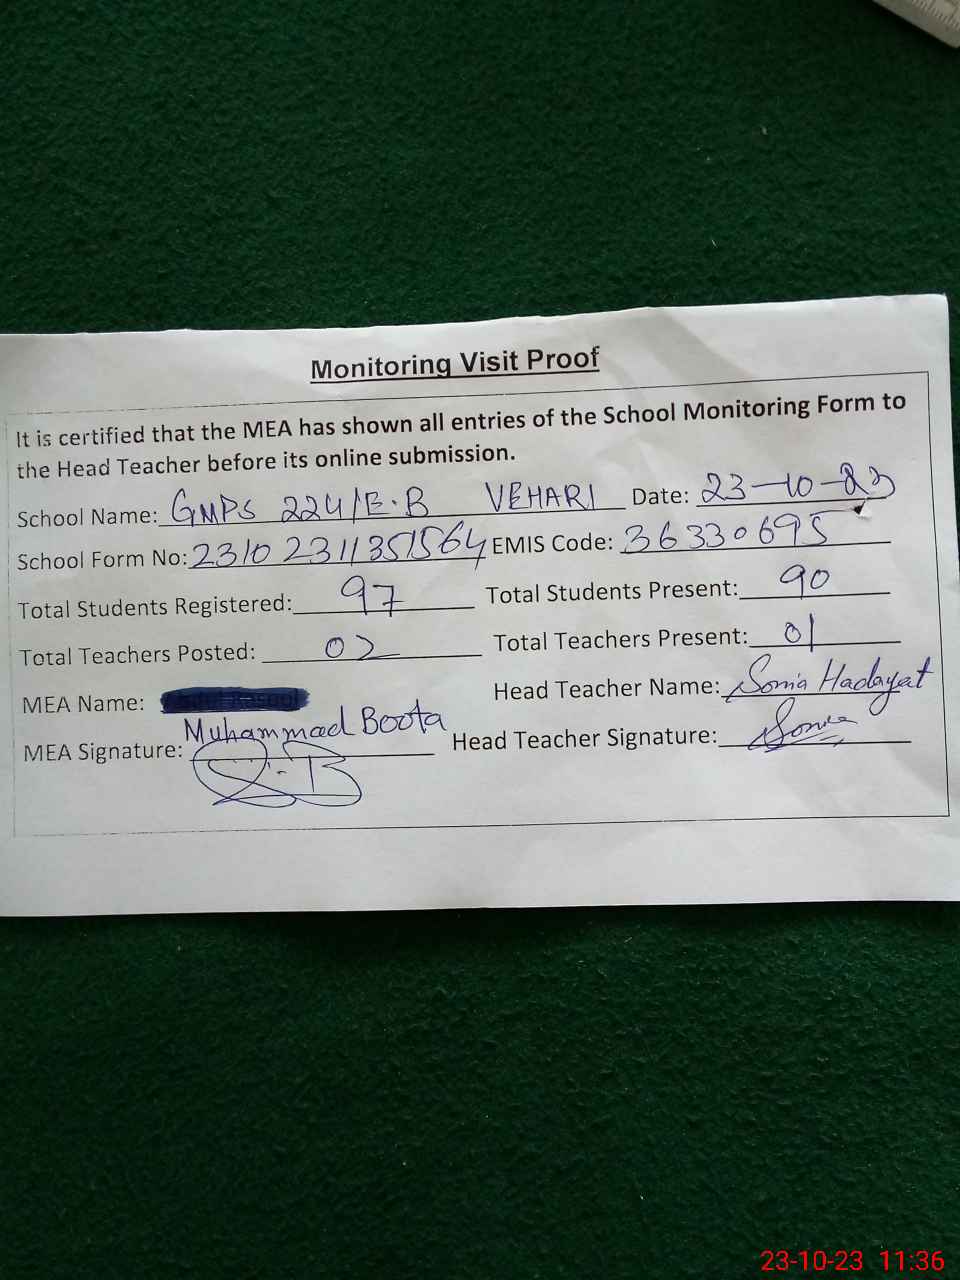 Monitoring Visit Proof
It is certified that the MEA has shown all entries of the School Monitoring Form to
the Head Teacher before its online submission.
School Name: GMPS 224/E.B VEHARI Date: 23-10-23
School Form No: 23102311351564 EMIS Code: 36330695
Total Students Registered: 97 Total Students Present: 90
Total Teachers Posted: 02 Total Teachers Present: 01
MEA Name: Head Teacher Name: Sonia Hadayat
Muhammad Boota
MEA Signature: Head Teacher Signature: Sonia
23-10-23 11:36